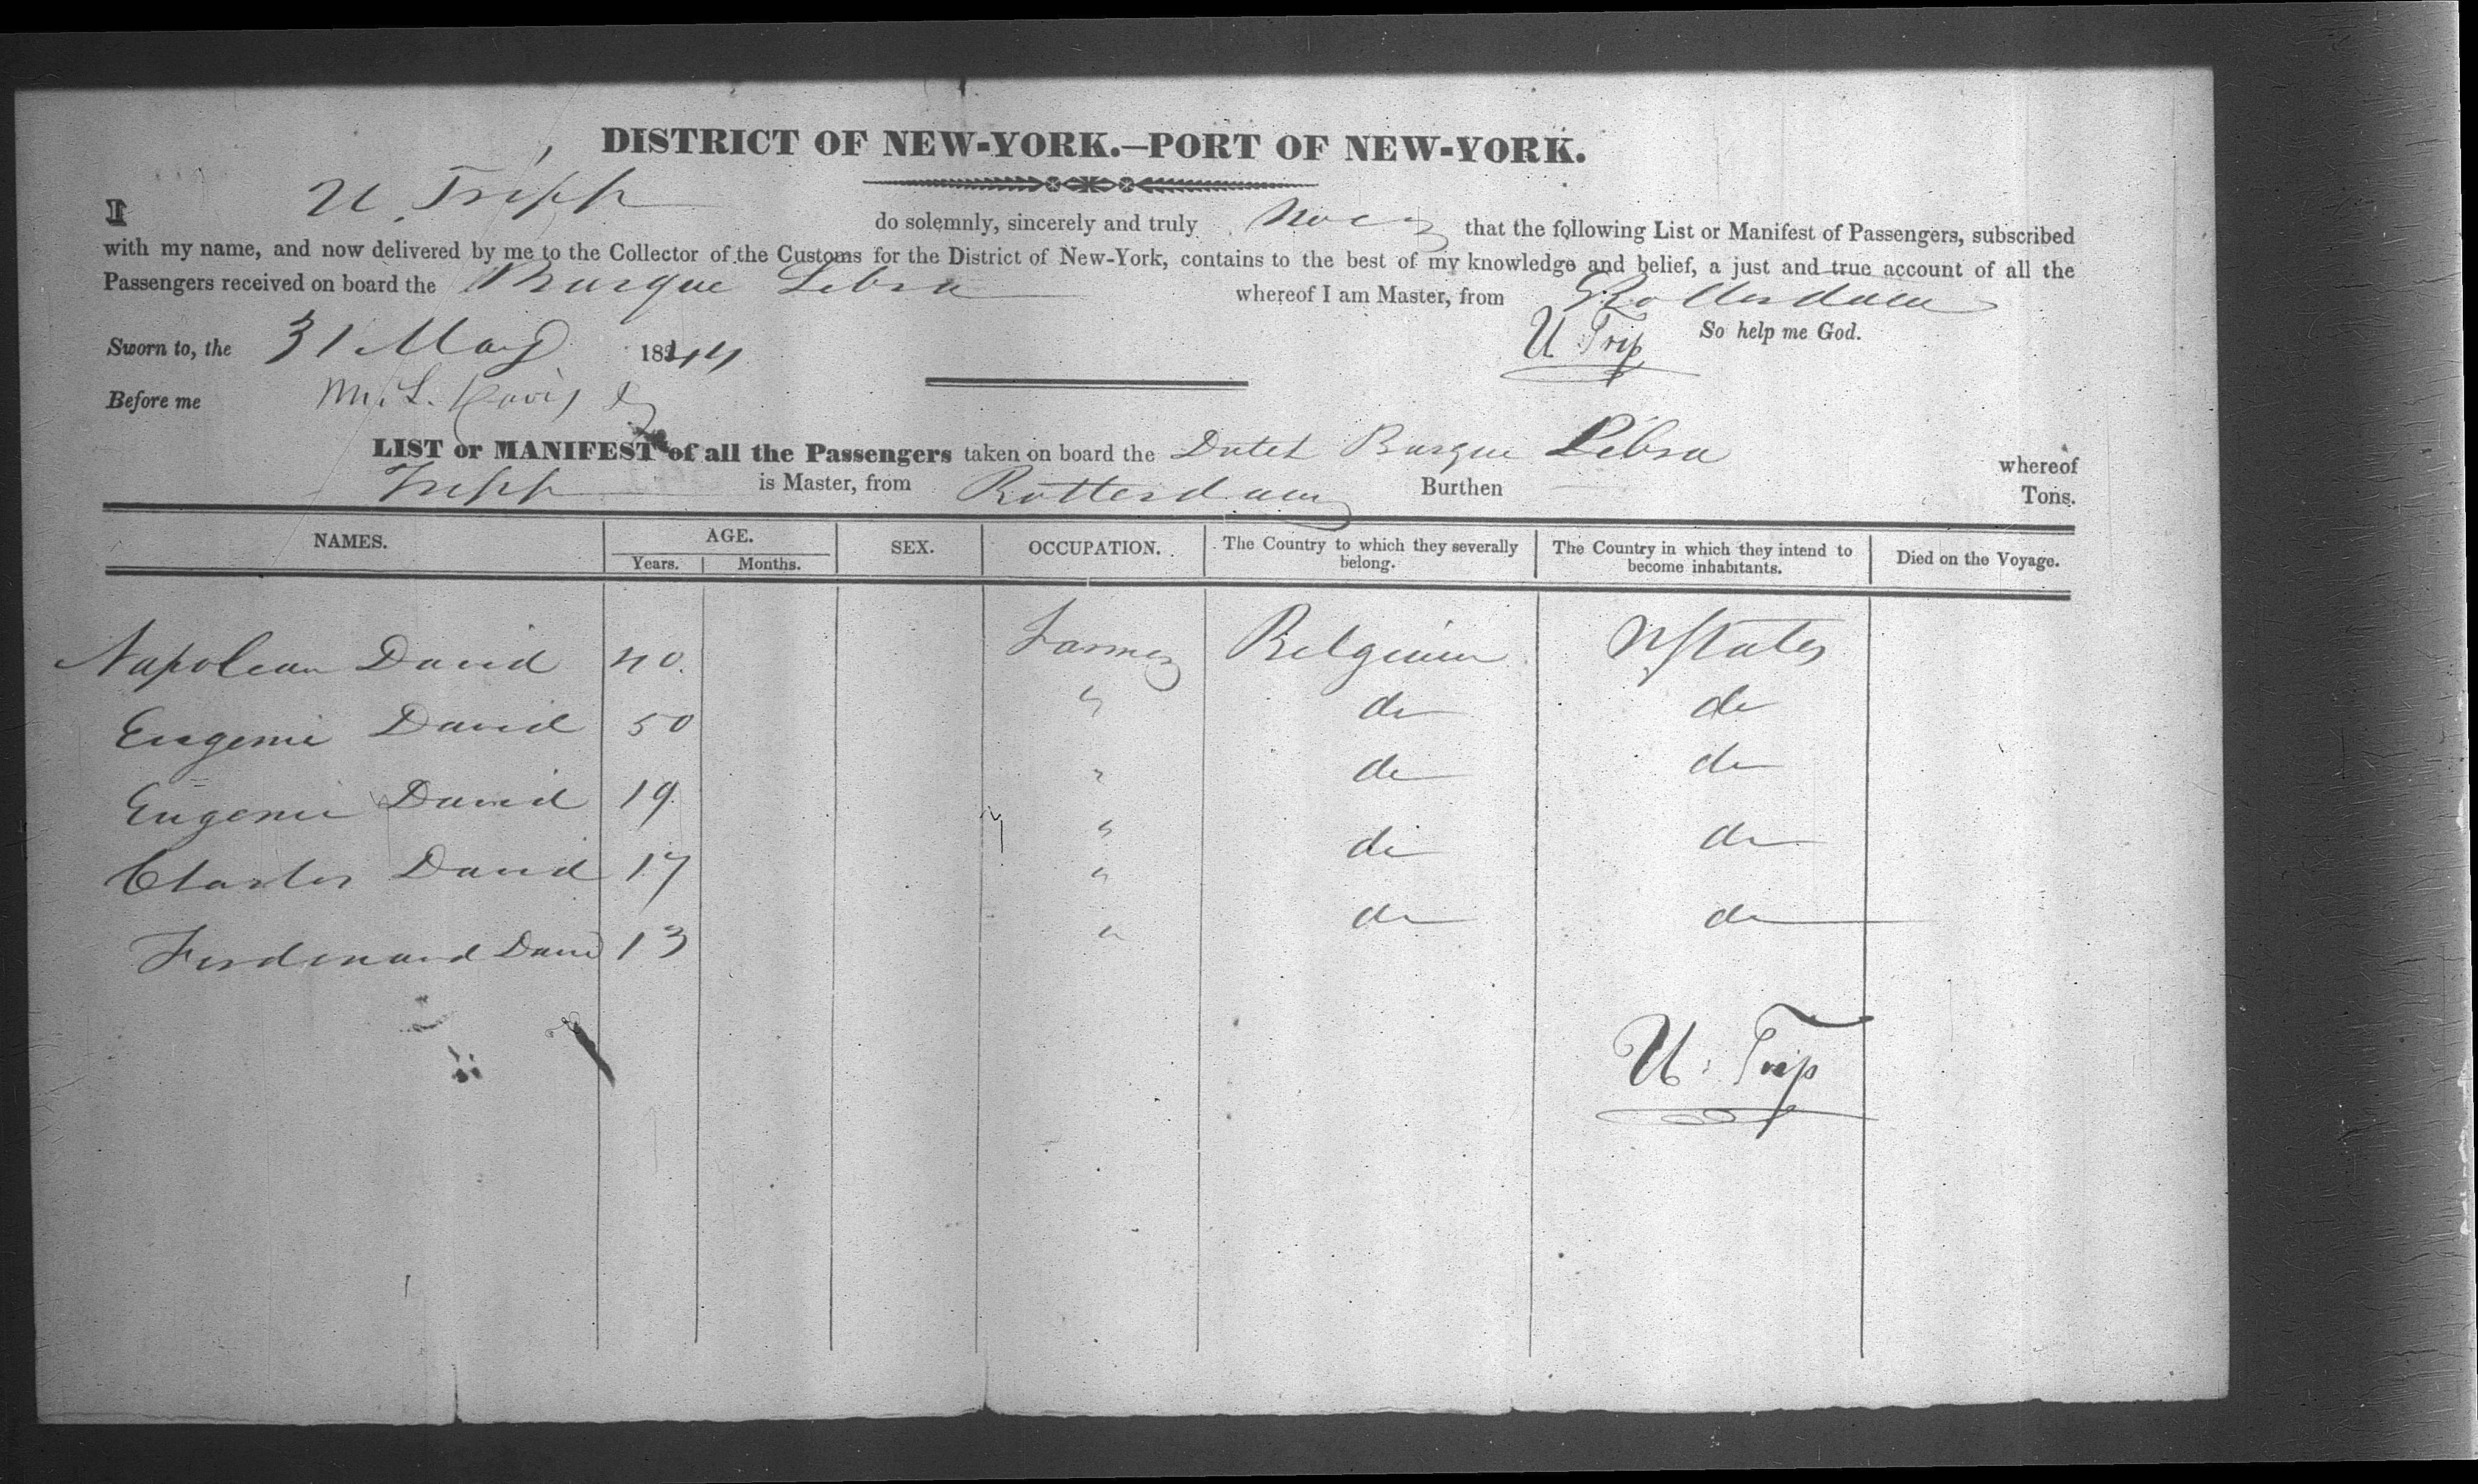 DISTRICT OF NEW-YORK.—PORT OF NEW-YORK.
I U Tripp do solemnly, sincerely and truly that the following List or Manifest of Passengers, subscribed
with my name, and now delivered by me to the Collector of the Customs for the District of New-York, contains to the best of my knowledge and belief, a just and true account of all the
Passengers received on board the Barque Libra whereof I am Master, from Rotterdam
Sworn to, the 31 May 1844 U Trip So help me God.
Before me M. L. Davis
LIST or MANIFEST of all the Passengers taken on board the Dutch Barque Libra whereof
Tripp is Master, from Rotterdam Burthen Tons.
NAMES. AGE. SEX. OCCUPATION. The Country to which they severally belong. The Country in which they intend to become inhabitants. Died on the Voyage.
Years. Months.
Napolean David 40. Farmer Belgium UStates
Eugenie David 50 " do do
Eugenie David 19. " do do
Charles David 17 " do do
Ferdinand David 13 " do do
U. Trip